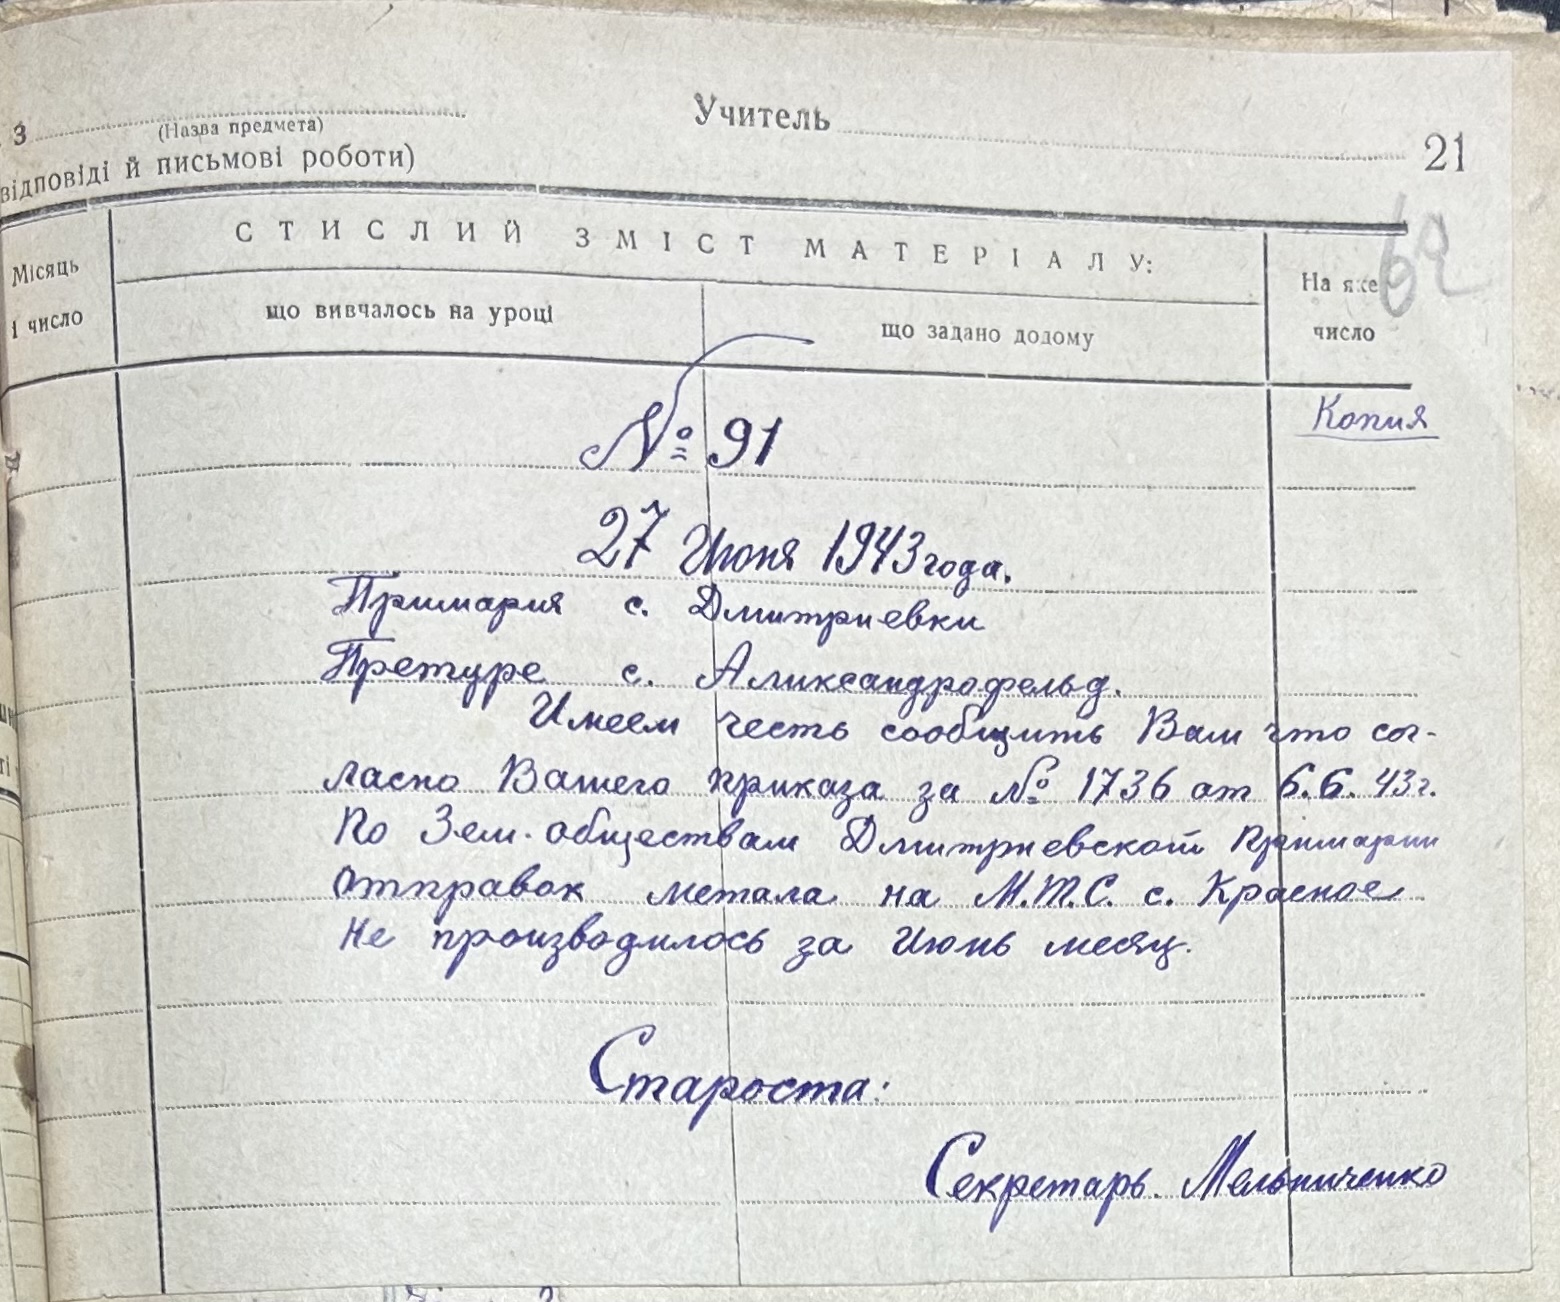 З (Назва предмета) Учитель 21
відповіді й письмові роботи)
62
Місяць і число
СТИСЛИЙ ЗМІСТ МАТЕРІАЛУ:
що вивчалось на уроці
що задано додому
На яке число
Копия
№ 91
27 Июня 1943 года.
Примария с. Дмитриевки
Претуре с. Аликсандрофельд.
Имеем честь сообщить Вам что сог-
ласно Вашего приказа за № 1736 от 6.6.43г.
По Зем. обществам Дмитриевской Примарии
отправок метала на М.Т.С. с. Красное
Не производилось за Июнь месяц.
Староста:
Секретарь. Мельниченко